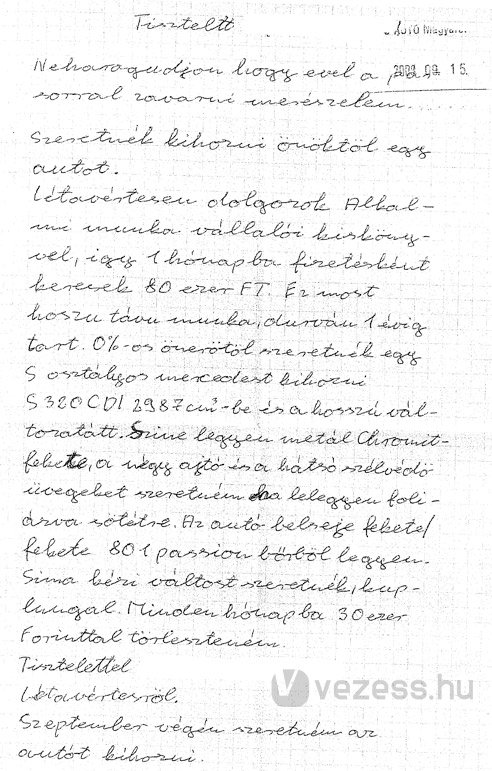 Tiszteltt
Autó Magyaror
Neharagudjon hogy evel a pár
15.
sorral zavarni merészelem.....
Szeretnék kihozni önöktöl egy
autot.
Létavértesen dolgozok Alkal-
mi munka vállalói kiskönyv-
vel, igy 1 hónapba fizetésként
keresek 80 ezer FT. Ez most
hoszu távu munka, durván 1 évig
tart. 0%-os önerötöl szeretnék egy
S osztályos mercedest kihozni
S 320 CDI 2987 cm³-be és a hosszú vál-
tozatátt. Szine legyen metál Chromit-
fekete, a négy ajtó és a hátsó szélvédö
üvegeket szeretném ha lelegyen foli-
ázva sötétre. Az autó belseje fekete/
fekete 801 passion börböl legyen.
Sima kézi váltost szeretnék, kup-
lunggal. Minden hónapba 30 ezer
Forinttal törleszteném.
Tisztelettel
Létavértesröl.
Szeptember végén szeretném az
autót kihozni.
vezess.hu